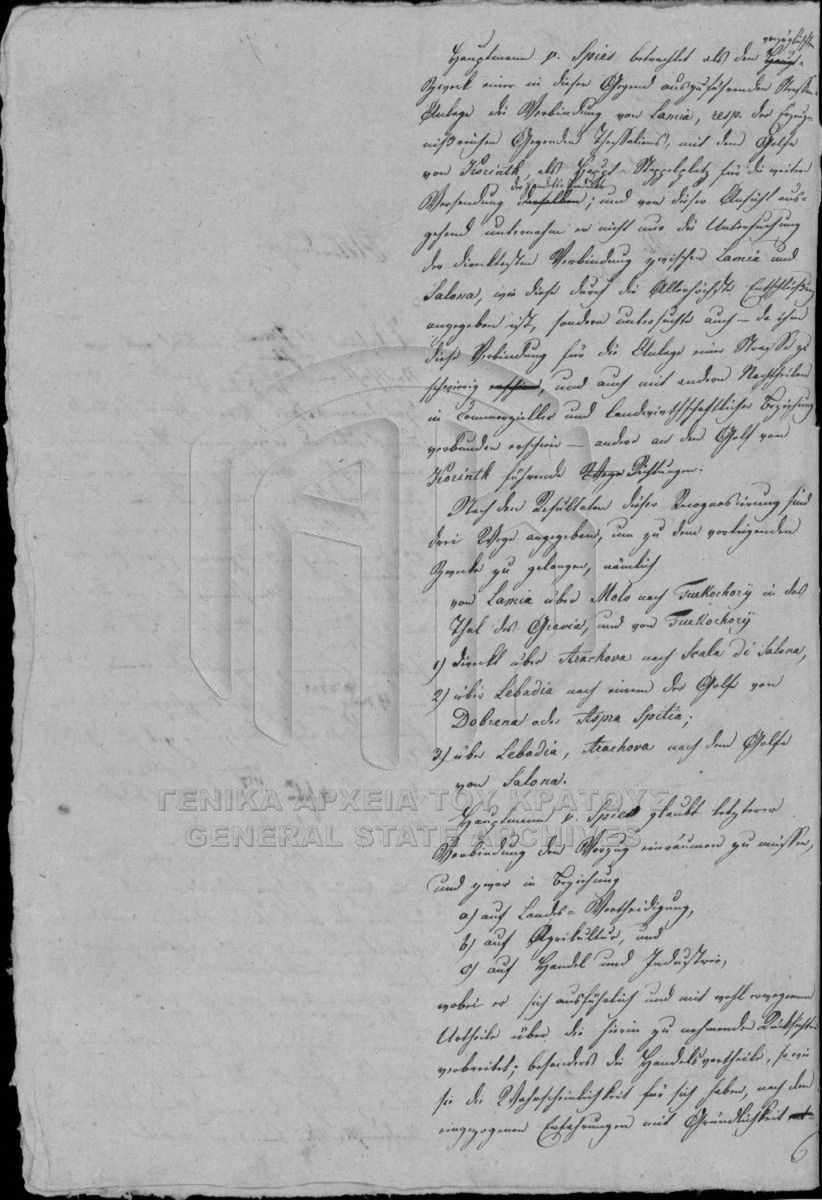 vorzüglichsten
Hauptmann v. Spies betrachtet als den Haupt-
Zweck einer in dieser Gegend auszuführenden Strassen-
Anlage die Verbindung von Lamia, resp. der Erzeug-
nißreichen Gegenden Thessaliens, mit dem Golfe
von Korinth, als Haupt-Stappelplatz für die weitere
der Handels
Versendung derselben; und von dieser Ansicht aus-
gehend unternahm er nicht nur die Untersuchung
der direktesten Verbindung zwischen Lamia und
Salona, wie diese durch die Allerhöchste Entschließung
angegeben ist, sondern untersuchte auch – da ihm
diese Verbindung für die Anlage einer Strasse zu
schwierig erschien, und auch mit andern Nachtheilen
in Commerzieller und landwirthschaftlicher Beziehung
verbunden erschien – andere an den Golf von
Korinth führende Wege Richtungen.
Nach den Resultaten dieser Recognoscierung sind
drei Wege angegeben, um zu dem vorliegenden
Zwecke zu gelangen, nämlich
von Lamia über Molo nach Turkochory in das
Thal des Gravia, und von Turkochory
1) direkt über Arachova nach Scala di Salona,
2) über Lebadia nach einem der Golfe von
Dobrena oder Aspra Spitia;
3) über Lebadia, Arachova nach dem Golfe
von Salona.
Hauptmann v. Spies glaubt letzterer
Verbindung den Vorzug einräumen zu müssen,
und zwar in Beziehung
a) auf Landes-Vertheidigung,
b) auf Agrikultur, und
c) auf Handel und Industrie,
wobei er sich ausführlich und mit wohl erwogenem
Urtheile über die hierin zu nehmenden Rücksichten
verbreitet; besonders die Handelsvortheile, so wie
sie die Wahrscheinlichkeit für sich haben, nach den
eingezogenen Erfahrungen mit Gründlichkeit
ΓΕΝΙΚΑ ΑΡΧΕΙΑ ΤΟΥ ΚΡΑΤΟΥΣ
GENERAL STATE ARCHIVES